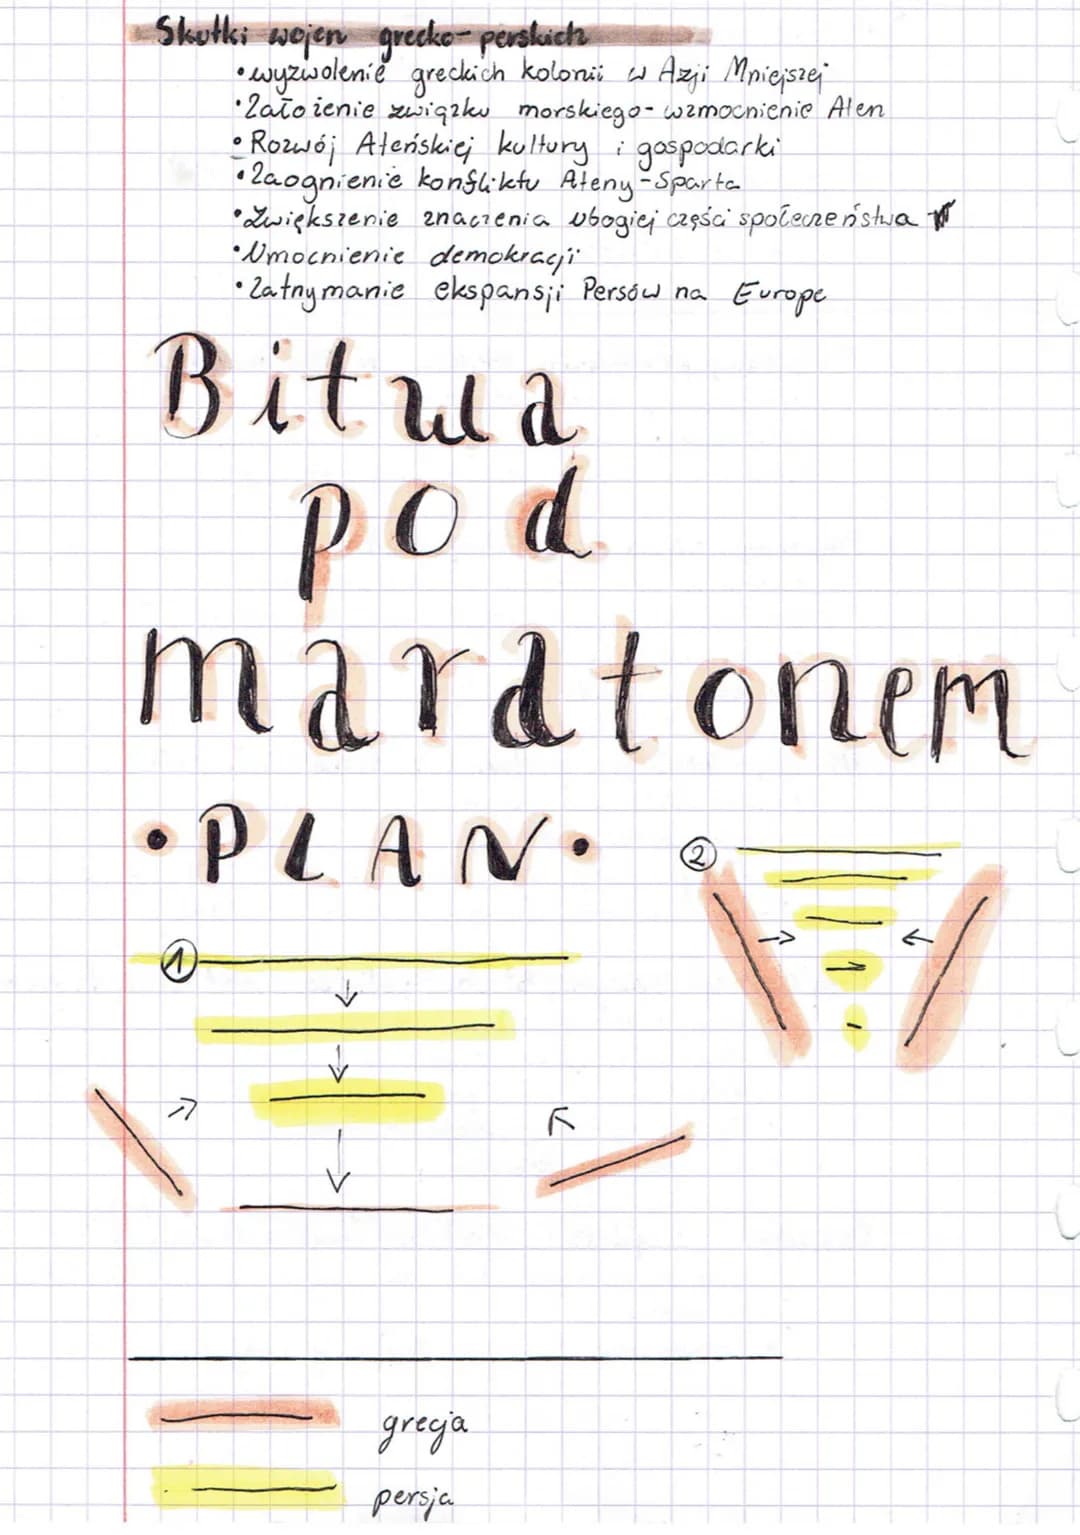 Skutki wojen grecko-perskich
• wyzwolenie greckich kolonii w Azji Mniejszej
• Założenie związku morskiego - wzmocnienie Aten
• Rozwój Ateńskiej kultury i gospodarki
• Zaognienie konfliktu Ateny-Sparta
• Zwiększenie znaczenia ubogiej części społeczeństwa
• Umocnienie demokracji
• Zatrzymanie ekspansji Persów na Europę
Bitwa
pod
maratonem
• PLAN •
2
1
grecja
persja